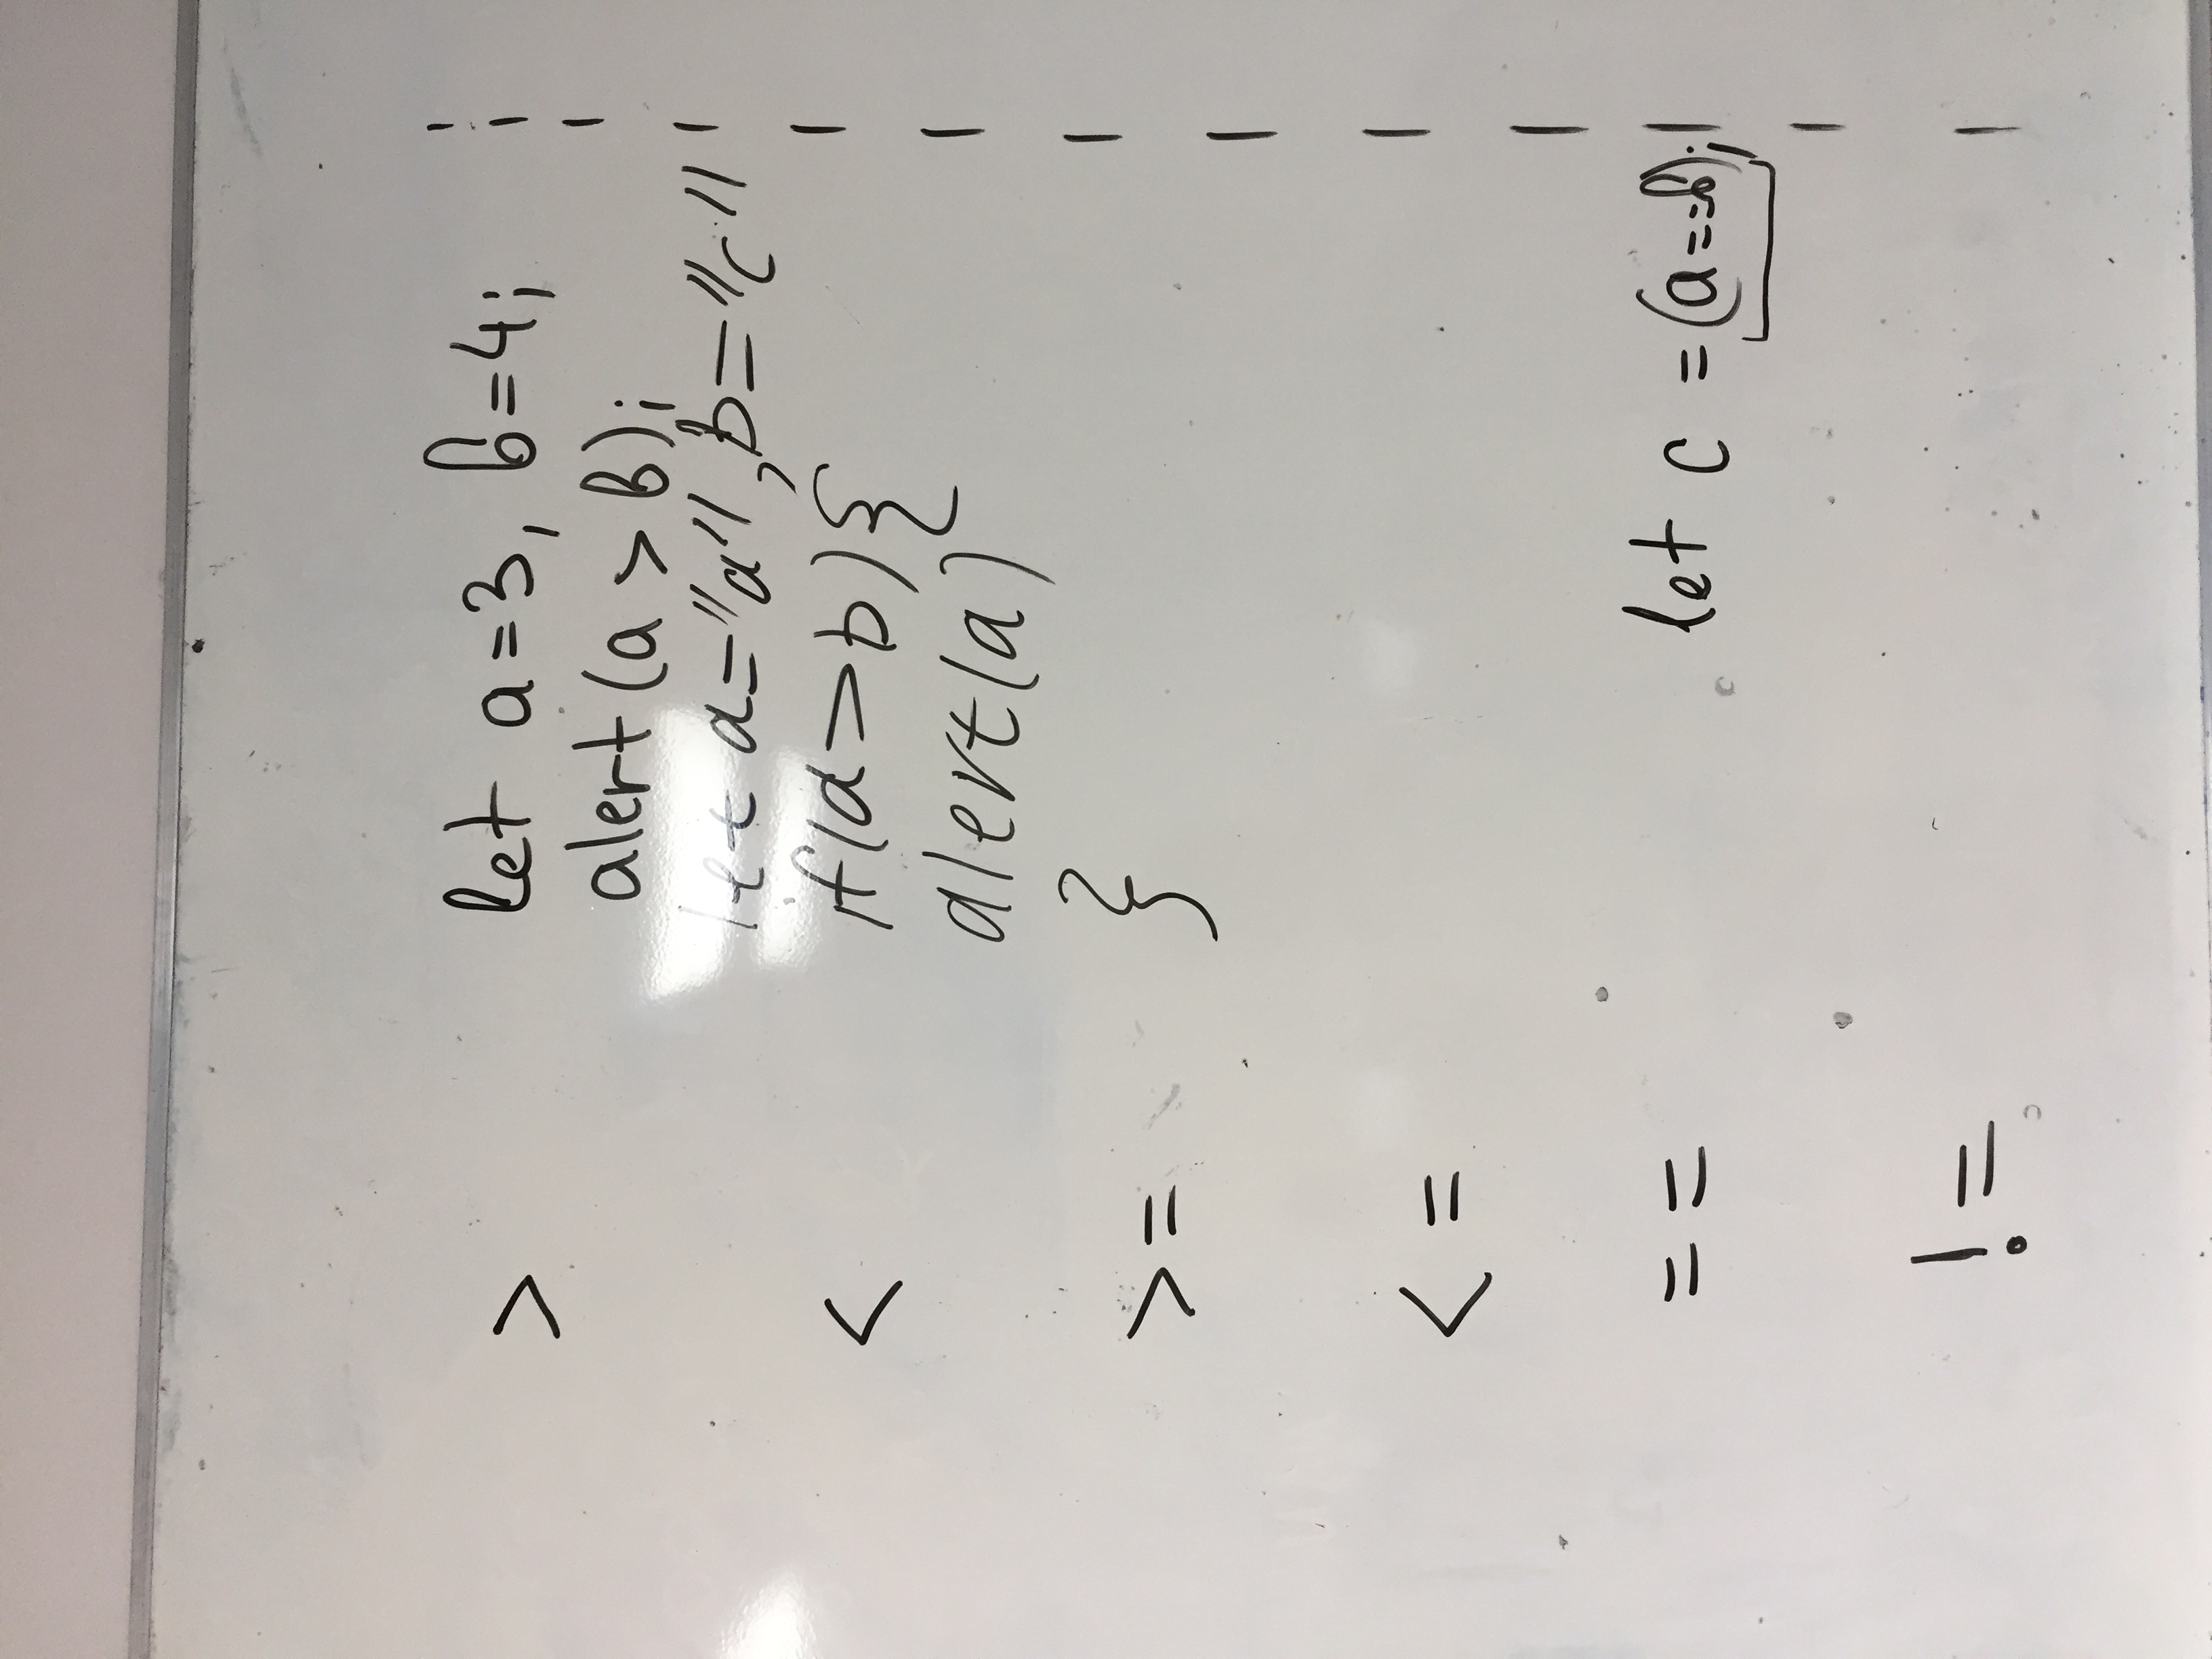 > let a=3, b=4;
alert(a > b);
let a="a", b="c"
< if(a>b){
alert(a)
>= }
<=
== let c =(a==b);
!=